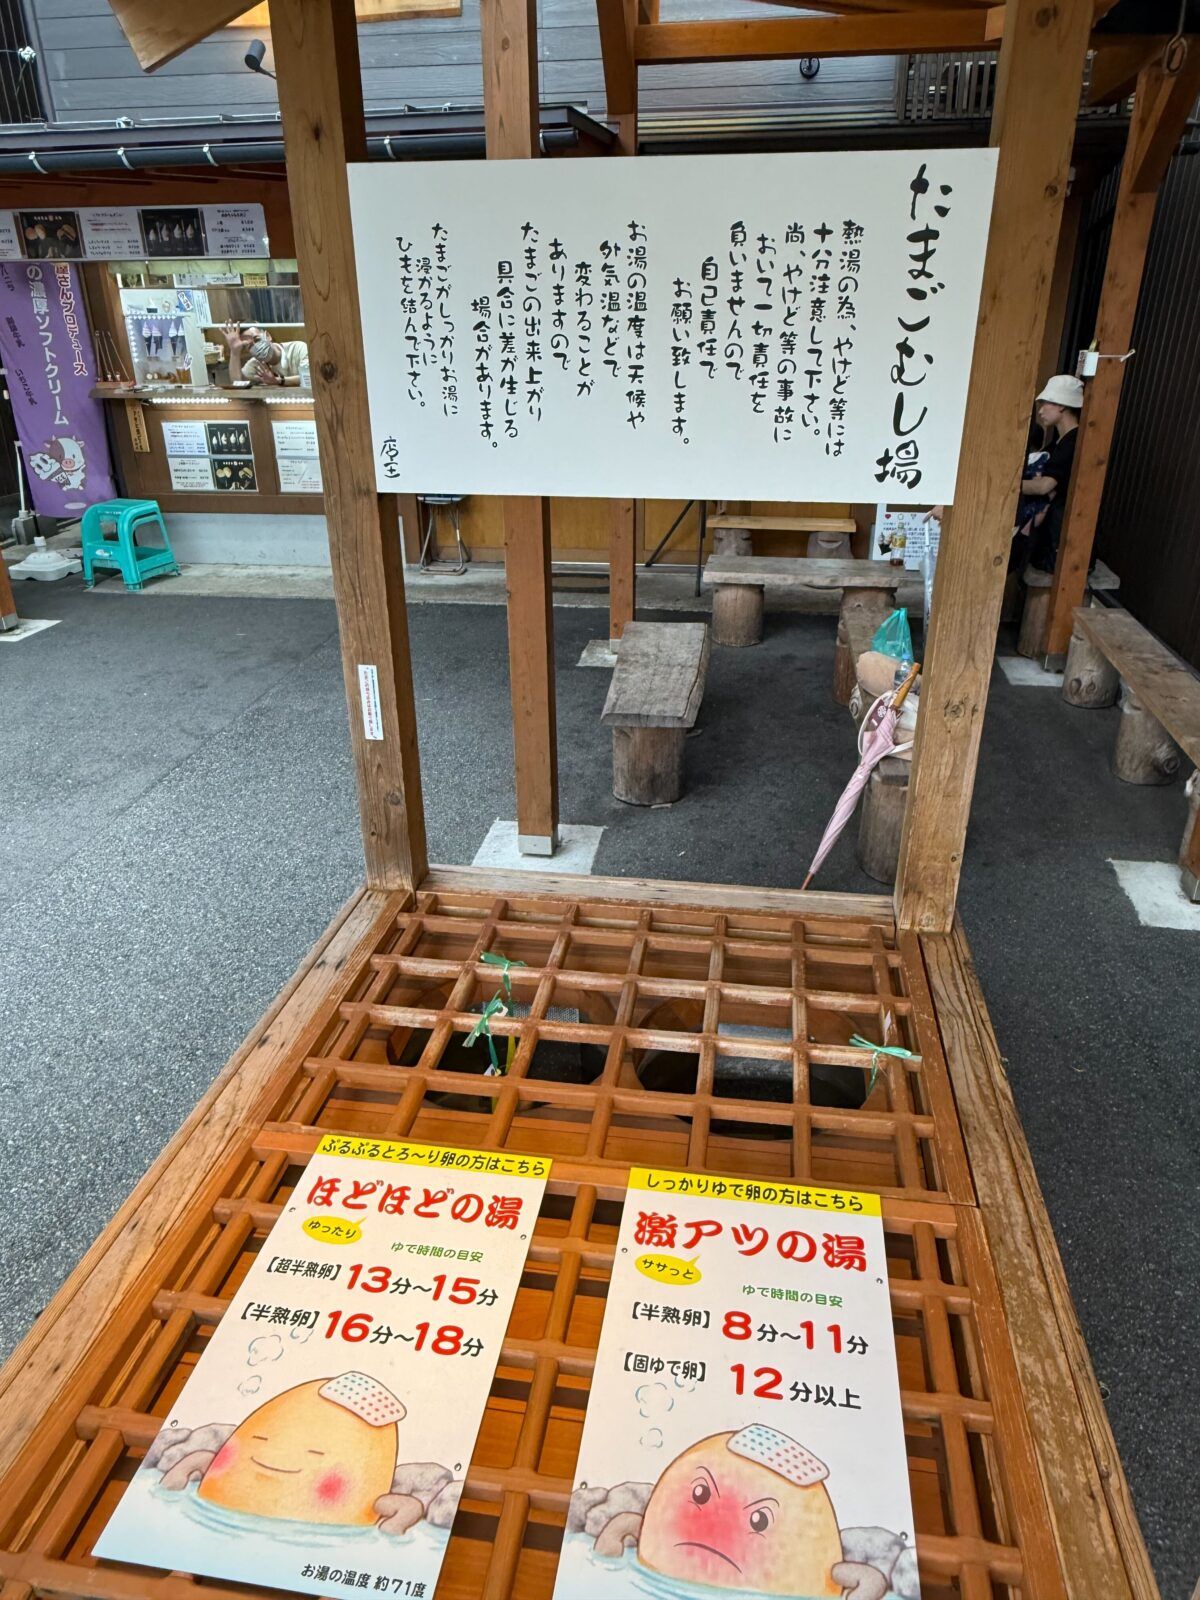 たまごむし場
熱湯の為、やけど等には
十分注意して下さい。
尚、やけど等の事故に
おいて一切責任を
負いませんので
自己責任で
お願い致します。
お湯の温度は天候や
外気温などで
変わることが
ありますので
たまごの出来上がり
具合に差が生じる
場合があります。
たまごがしっかりお湯に
浸かるように
ひもを結んで下さい。
店主
の濃厚ソフトクリーム
屋さんプロデュース
ぷるぷるとろ〜り卵の方はこちら
ほどほどの湯
ゆったり
ゆで時間の目安
【超半熟卵】13分〜15分
【半熟卵】16分〜18分
お湯の温度 約71度
しっかりゆで卵の方はこちら
激アツの湯
ササっと
ゆで時間の目安
【半熟卵】8分〜11分
【固ゆで卵】12分以上